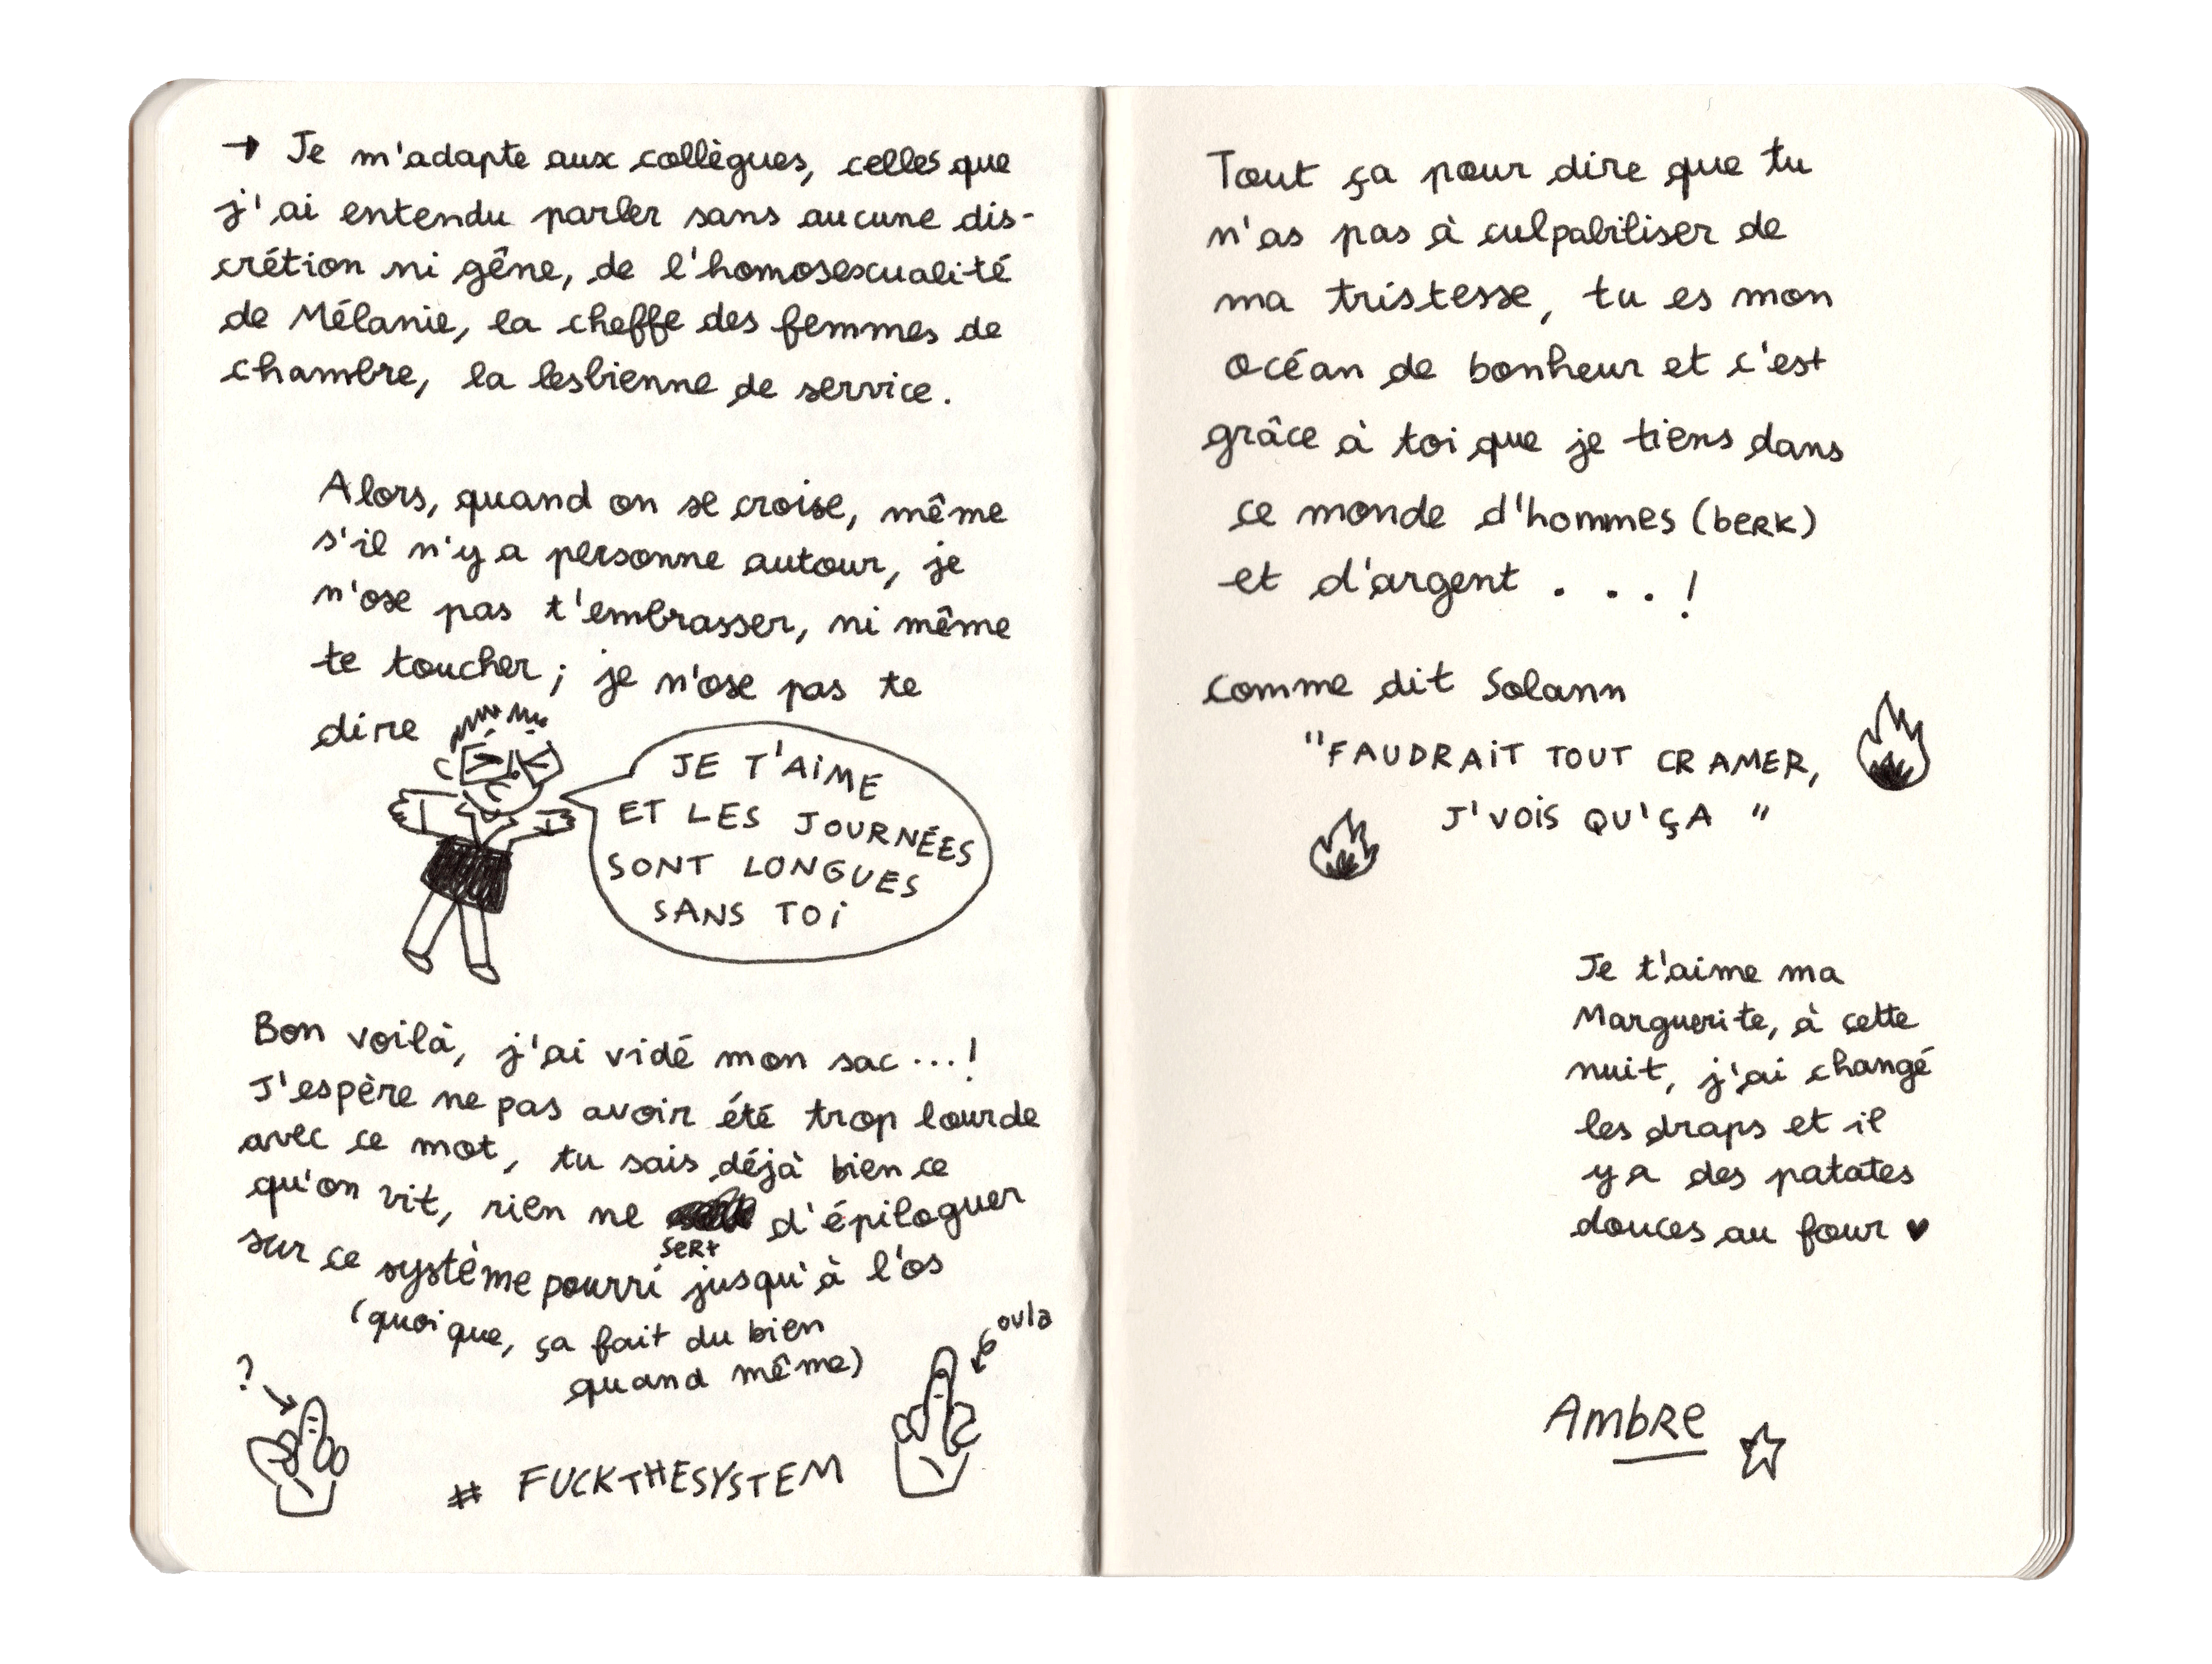 → Je m'adapte aux collègues, celles que
j'ai entendu parler sans aucune dis-
crétion ni gêne, de l'homosexualité
de Mélanie, la cheffe des femmes de
chambre, la lesbienne de service.
Alors, quand on se croise, même
s'il n'y a personne autour, je
n'ose pas t'embrasser, ni même
te toucher ; je n'ose pas te
dire
JE T'AIME
ET LES JOURNÉES
SONT LONGUES
SANS TOI
Bon voilà, j'ai vidé mon sac...!
J'espère ne pas avoir été trop lourde
avec ce mot, tu sais déjà bien ce
qu'on vit, rien ne sert d'épiloguer
sur ce système pourri jusqu'à l'os
(quoique, ça fait du bien
quand même)
?
oula
# FUCKTHESYSTEM
Tout ça pour dire que tu
n'as pas à culpabiliser de
ma tristesse, tu es mon
océan de bonheur et c'est
grâce à toi que je tiens dans
ce monde d'hommes (berk)
et d'argent . . . !
comme dit Solann
"FAUDRAIT TOUT CRAMER,
J'VOIS QU'ÇA "
Je t'aime ma
Marguerite, à cette
nuit, j'ai changé
les draps et il
y a des patates
douces au four ♥
AMBRE